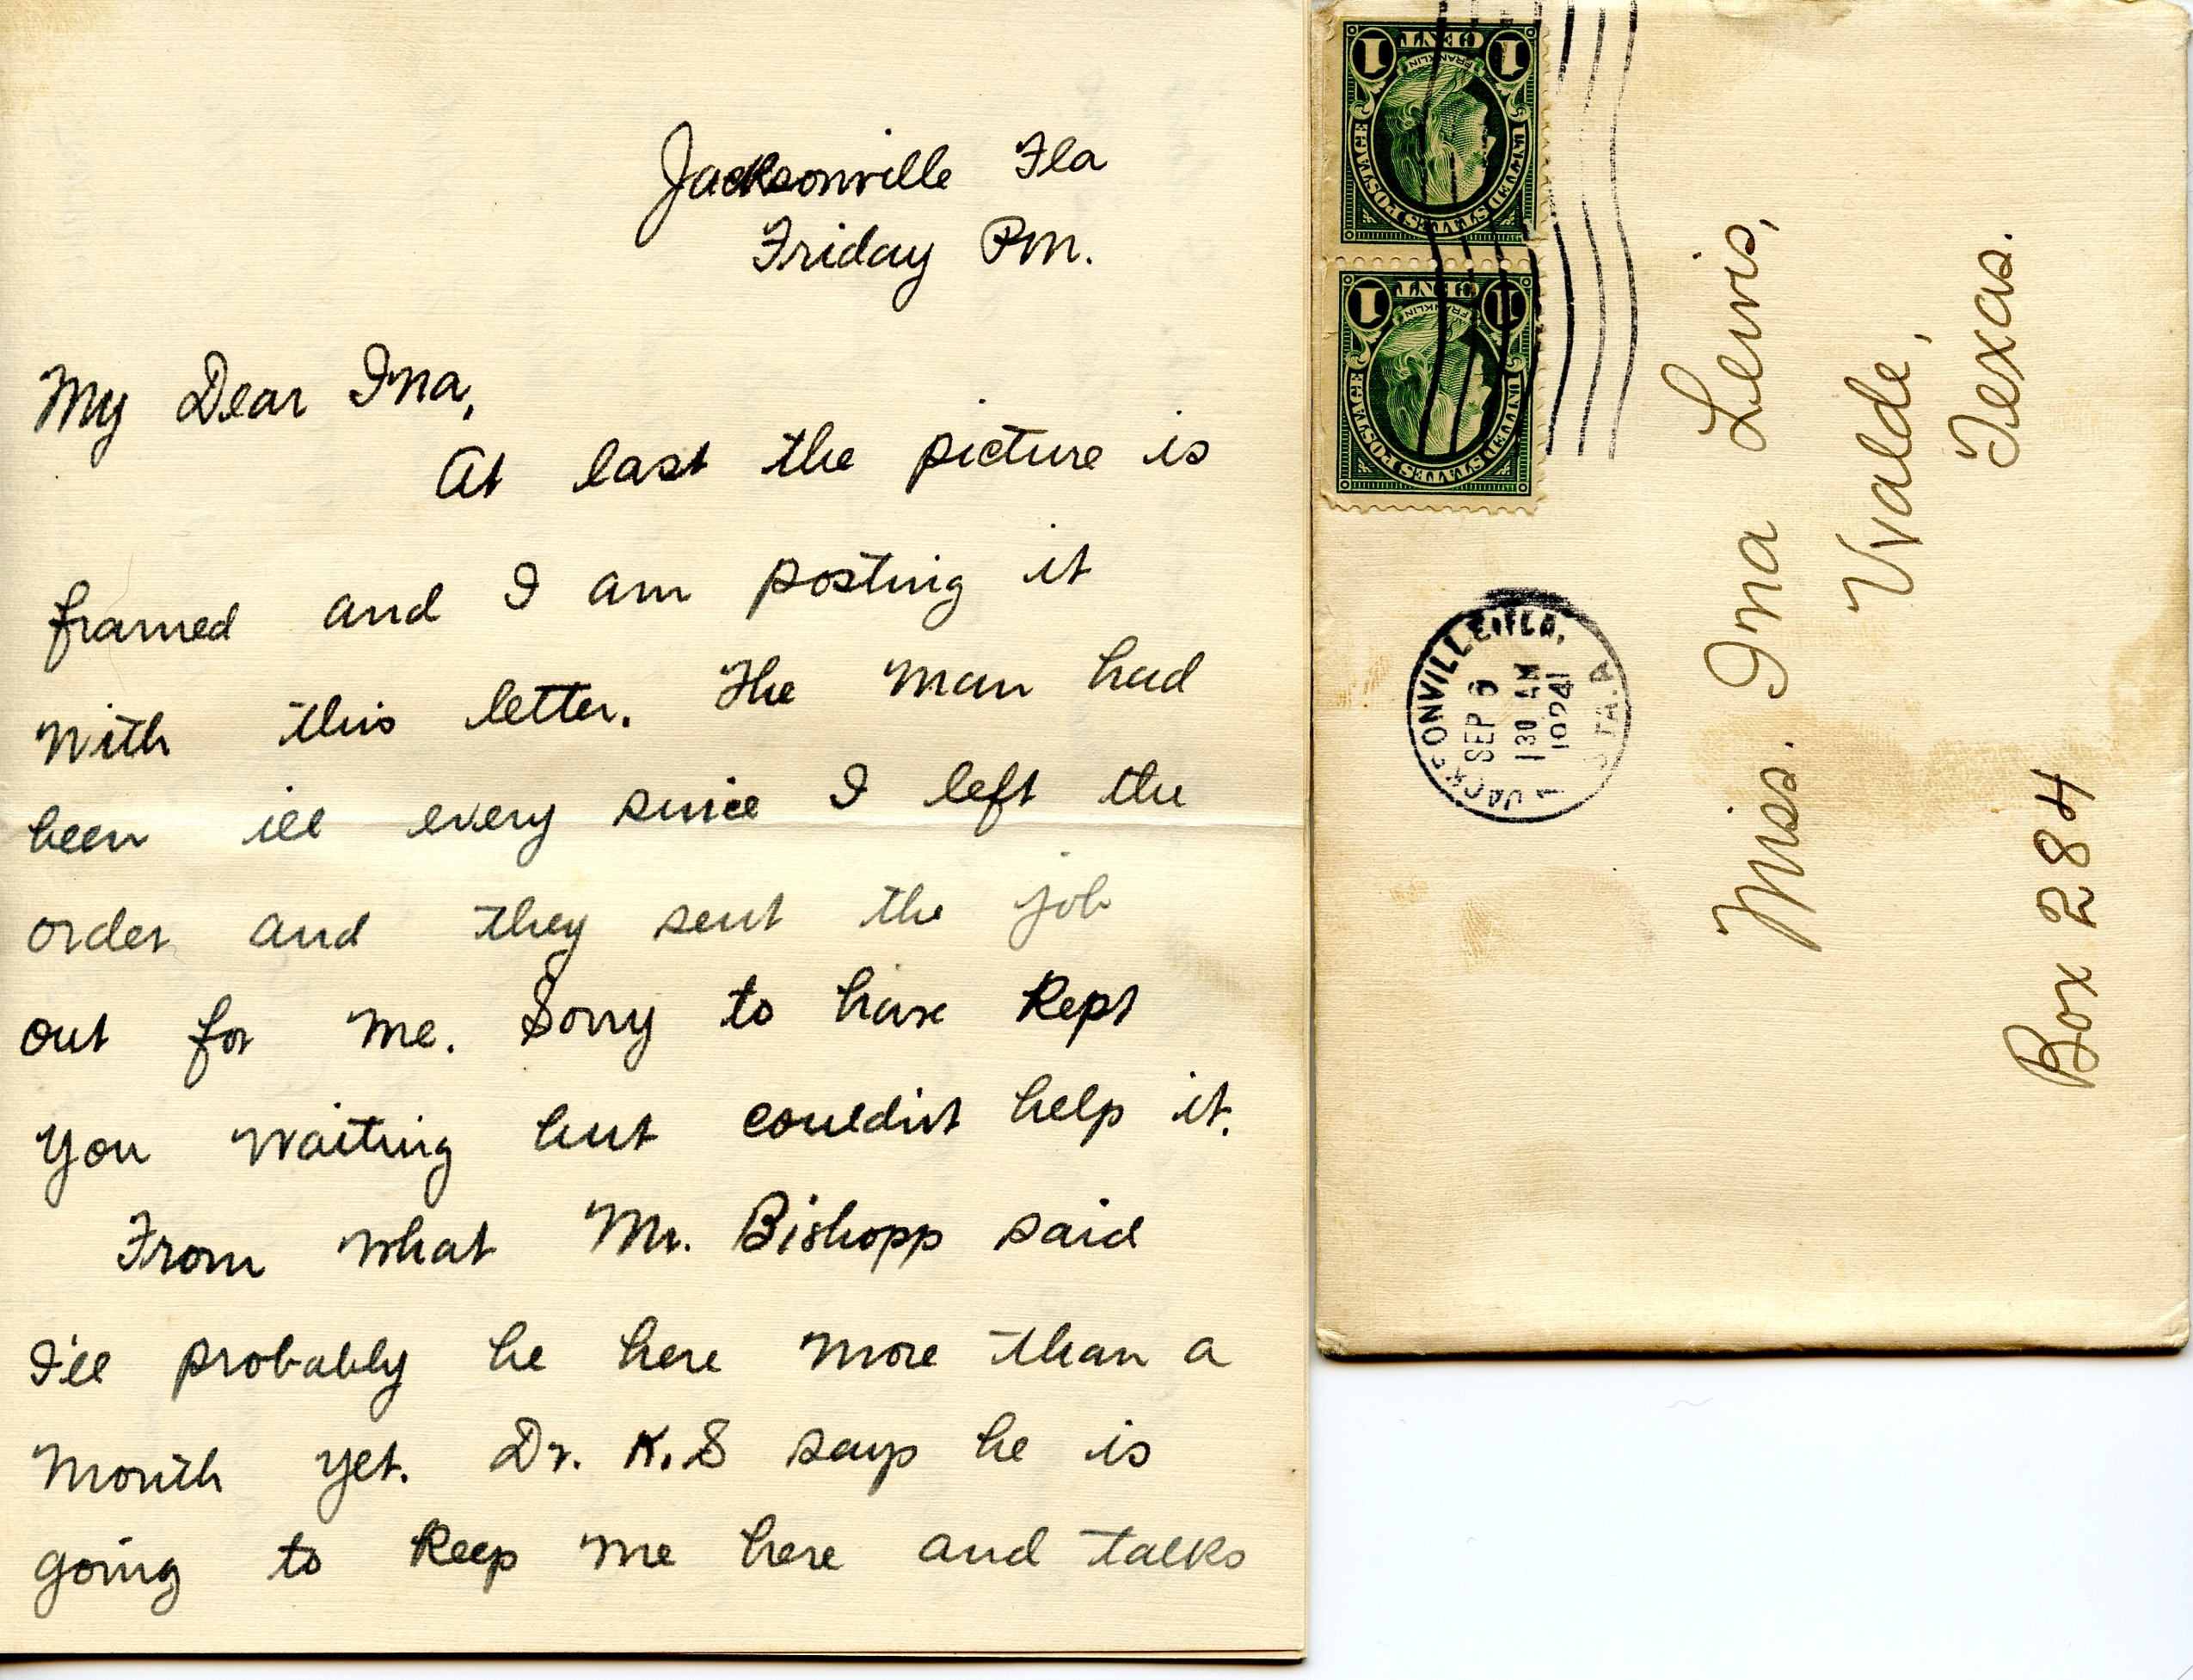 Jacksonville Fla
Friday PM.
My Dear Ina,
At last the picture is
framed and I am posting it
with this letter. The man had
been ill every since I left the
order and they sent the job
out for me. Sorry to have kept
you waiting but couldn't help it.
From what Mr. Bishopp said
I'll probably be here more than a
month yet. Dr. K.S says he is
going to keep me here and talks
1 CENT 1
FRANKLIN
UNITED STATES POSTAGE
1 CENT 1
FRANKLIN
UNITED STATES POSTAGE
JACKSONVILLE, FLA.
SEP
130 AM
1924
STA. A
Miss. Ina Lewis,
Uvalde,
Texas.
Box 284